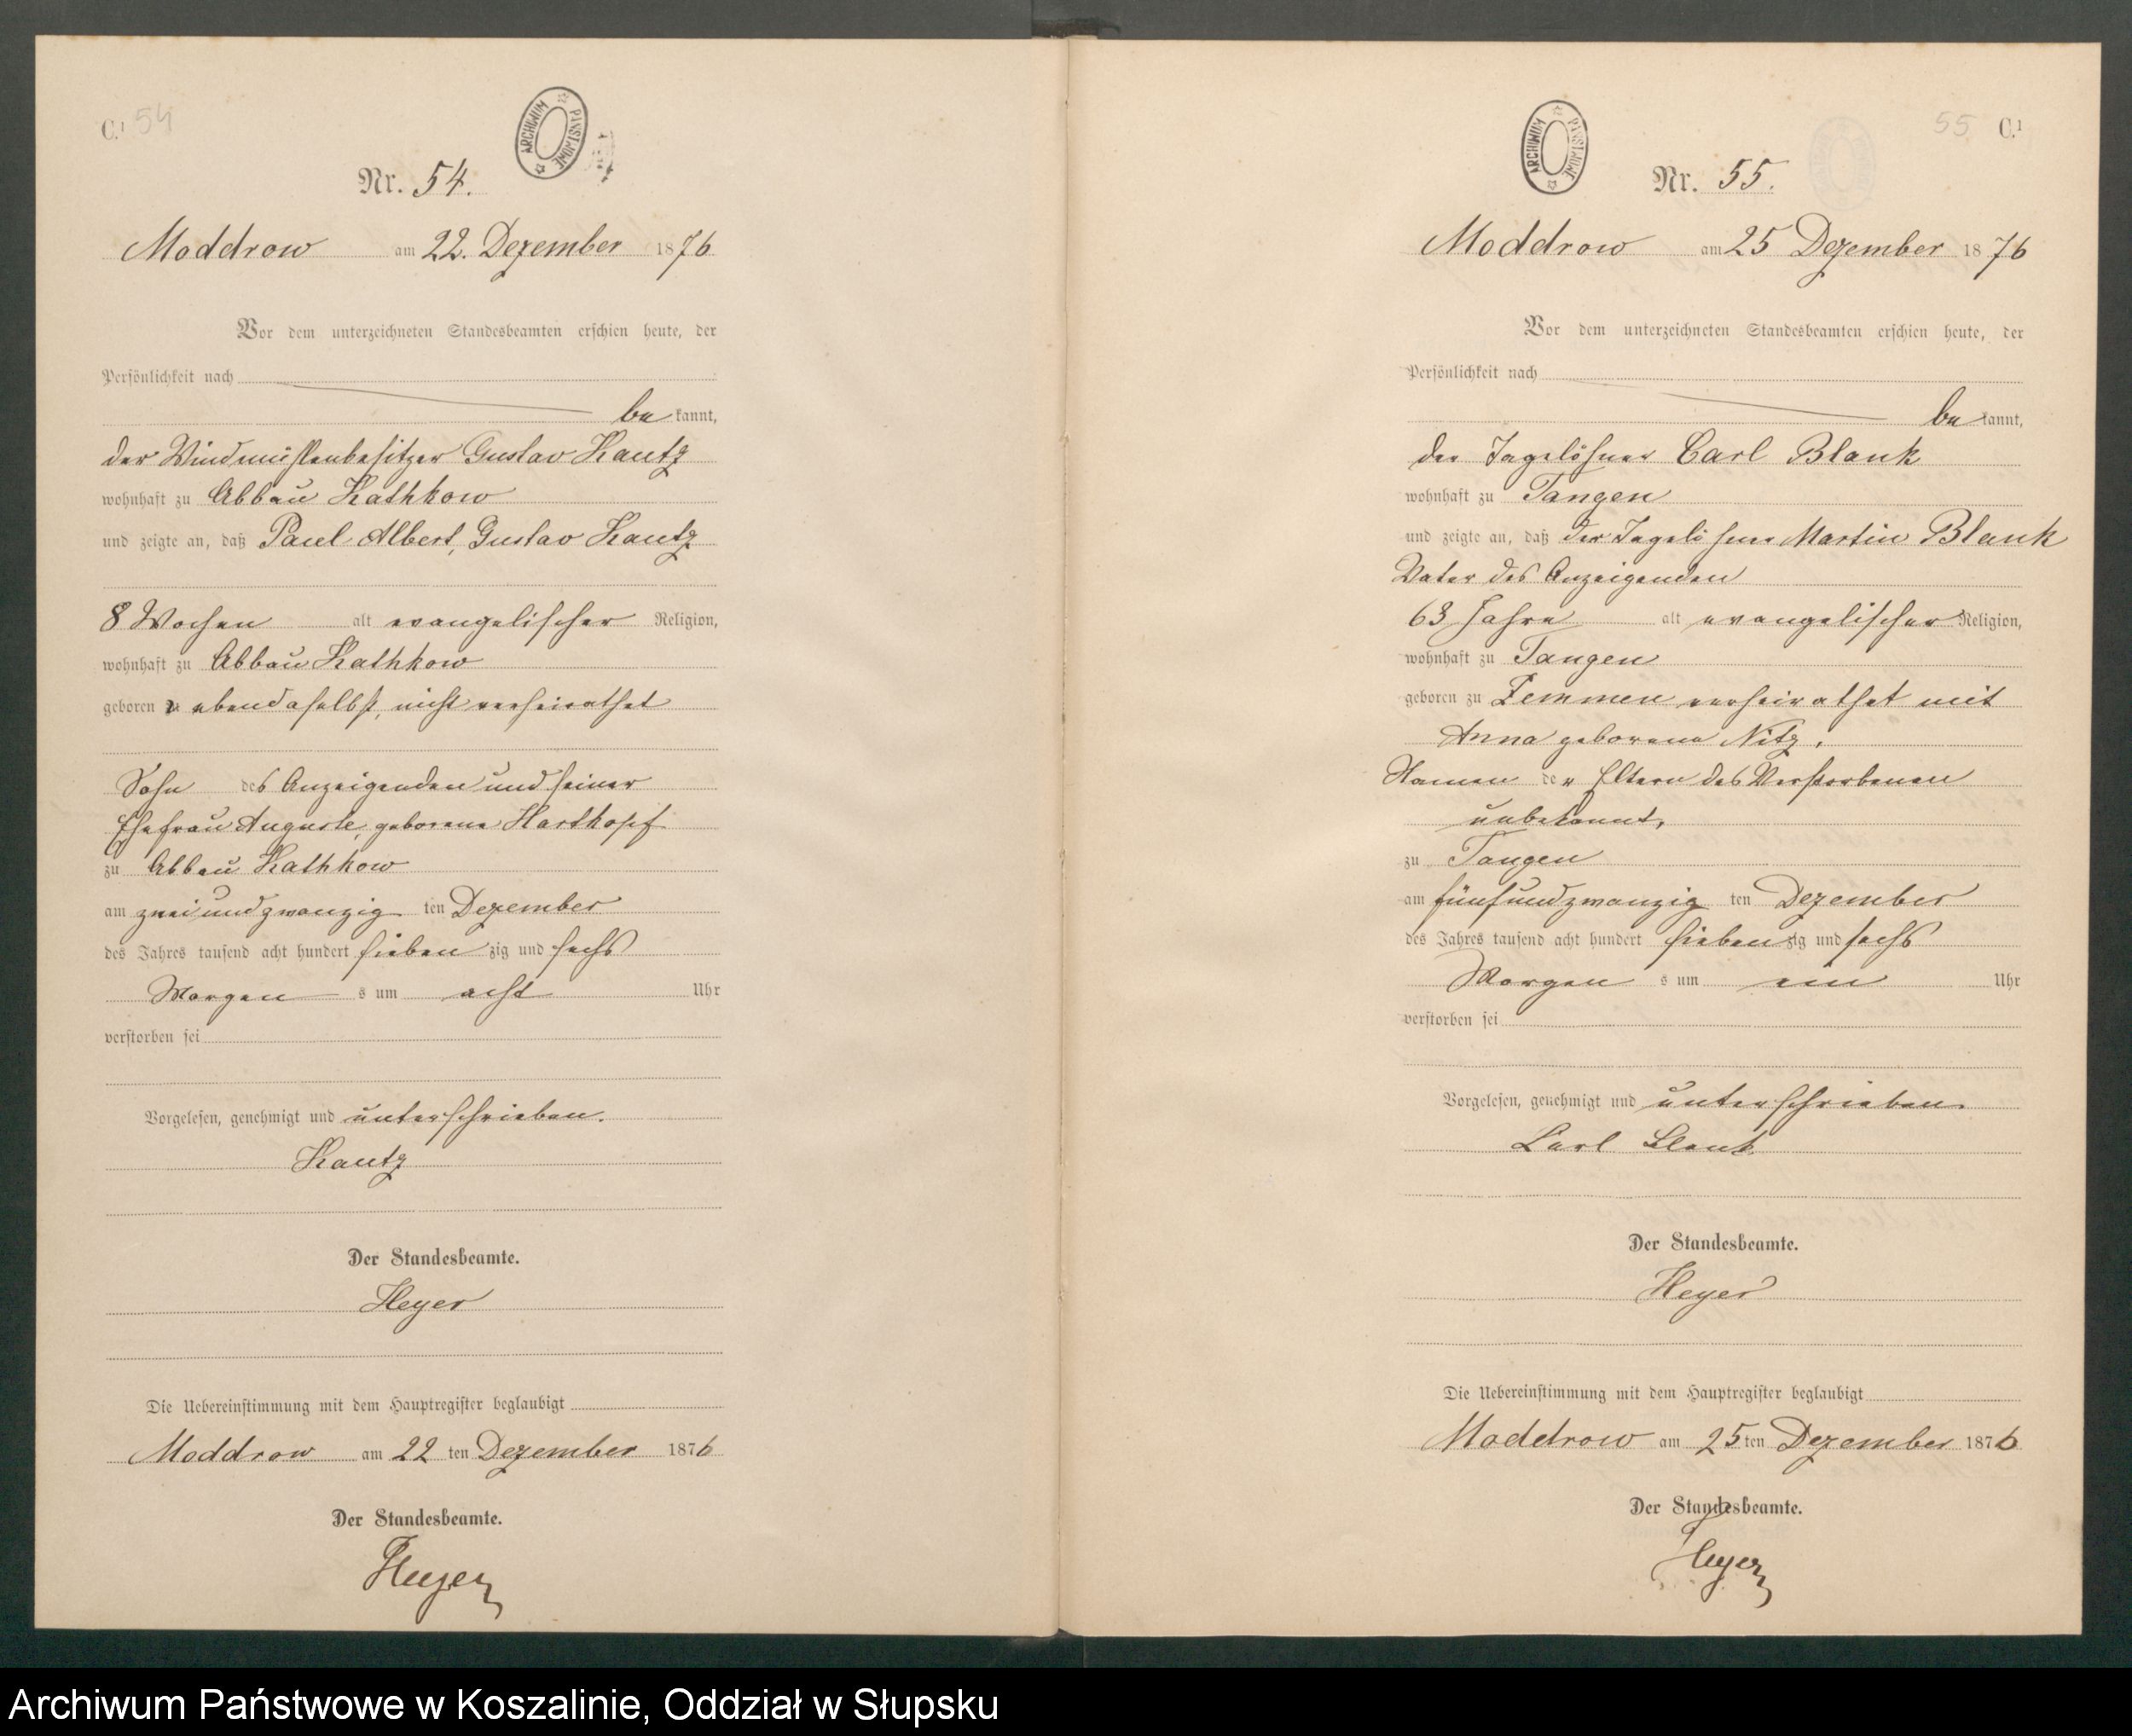 C.¹ 54
ARCHIWUM PAŃSTWOWE
Nr. 54.
Moddrow am 22. Dezember 1876
Vor dem unterzeichneten Standesbeamten erschien heute, der
Persönlichkeit nach
be kannt,
der Windmühlenbesitzer Gustav Kautz
wohnhaft zu Abbau Kathkow
und zeigte an, daß Paul Albert, Gustav Kautz
8 Wochen alt evangelischer Religion,
wohnhaft zu Abbau Kathkow
geboren zu ebendaselbst, nicht verheirathet
Sohn des Anzeigenden und seiner
Ehefrau Auguste, geborene Harthopf
zu Abbau Kathkow
am zwei und zwanzig ten Dezember
des Jahres tausend acht hundert sieben zig und sechs
Morgen s um acht Uhr
verstorben sei
Vorgelesen, genehmigt und unterschrieben.
Kautz
Der Standesbeamte.
Heyer
Die Uebereinstimmung mit dem Hauptregister beglaubigt
Moddrow am 22 ten Dezember 1876
Der Standesbeamte.
Heyer
55 C.¹
ARCHIWUM PAŃSTWOWE
Nr. 55.
Moddrow am 25 Dezember 1876
Vor dem unterzeichneten Standesbeamten erschien heute, der
Persönlichkeit nach
be kannt,
der Tagelöhner Carl Blank
wohnhaft zu Tangen
und zeigte an, daß der Tagelöhner Martin Blank
Vater des Anzeigenden
63 Jahre alt evangelischer Religion,
wohnhaft zu Tangen
geboren zu Zemmen verheirathet mit
Anna geborene Nitz,
Namen der Eltern des Verstorbenen
unbekannt,
zu Tangen
am fünfundzwanzig ten Dezember
des Jahres tausend acht hundert sieben zig und sechs
Morgen s um ein Uhr
verstorben sei
Vorgelesen, genehmigt und unterschrieben
Carl Blank
Der Standesbeamte.
Heyer
Die Uebereinstimmung mit dem Hauptregister beglaubigt
Moddrow am 25 ten Dezember 1876
Der Standesbeamte.
Heyer
Archiwum Państwowe w Koszalinie, Oddział w Słupsku